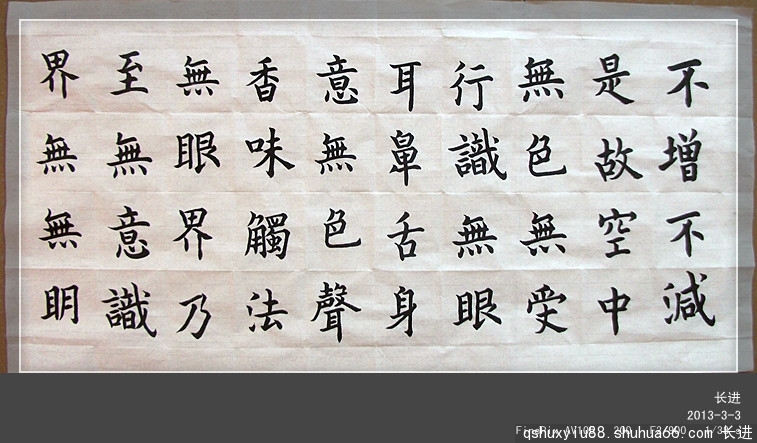 不增不減
是故空中
無色無受
行識無眼
耳鼻舌身
意無色聲
香味觸法
無眼界乃
至無意識
界無無明
长进
2013-3-3
qshuxyiu88.shuhua66.com 长进